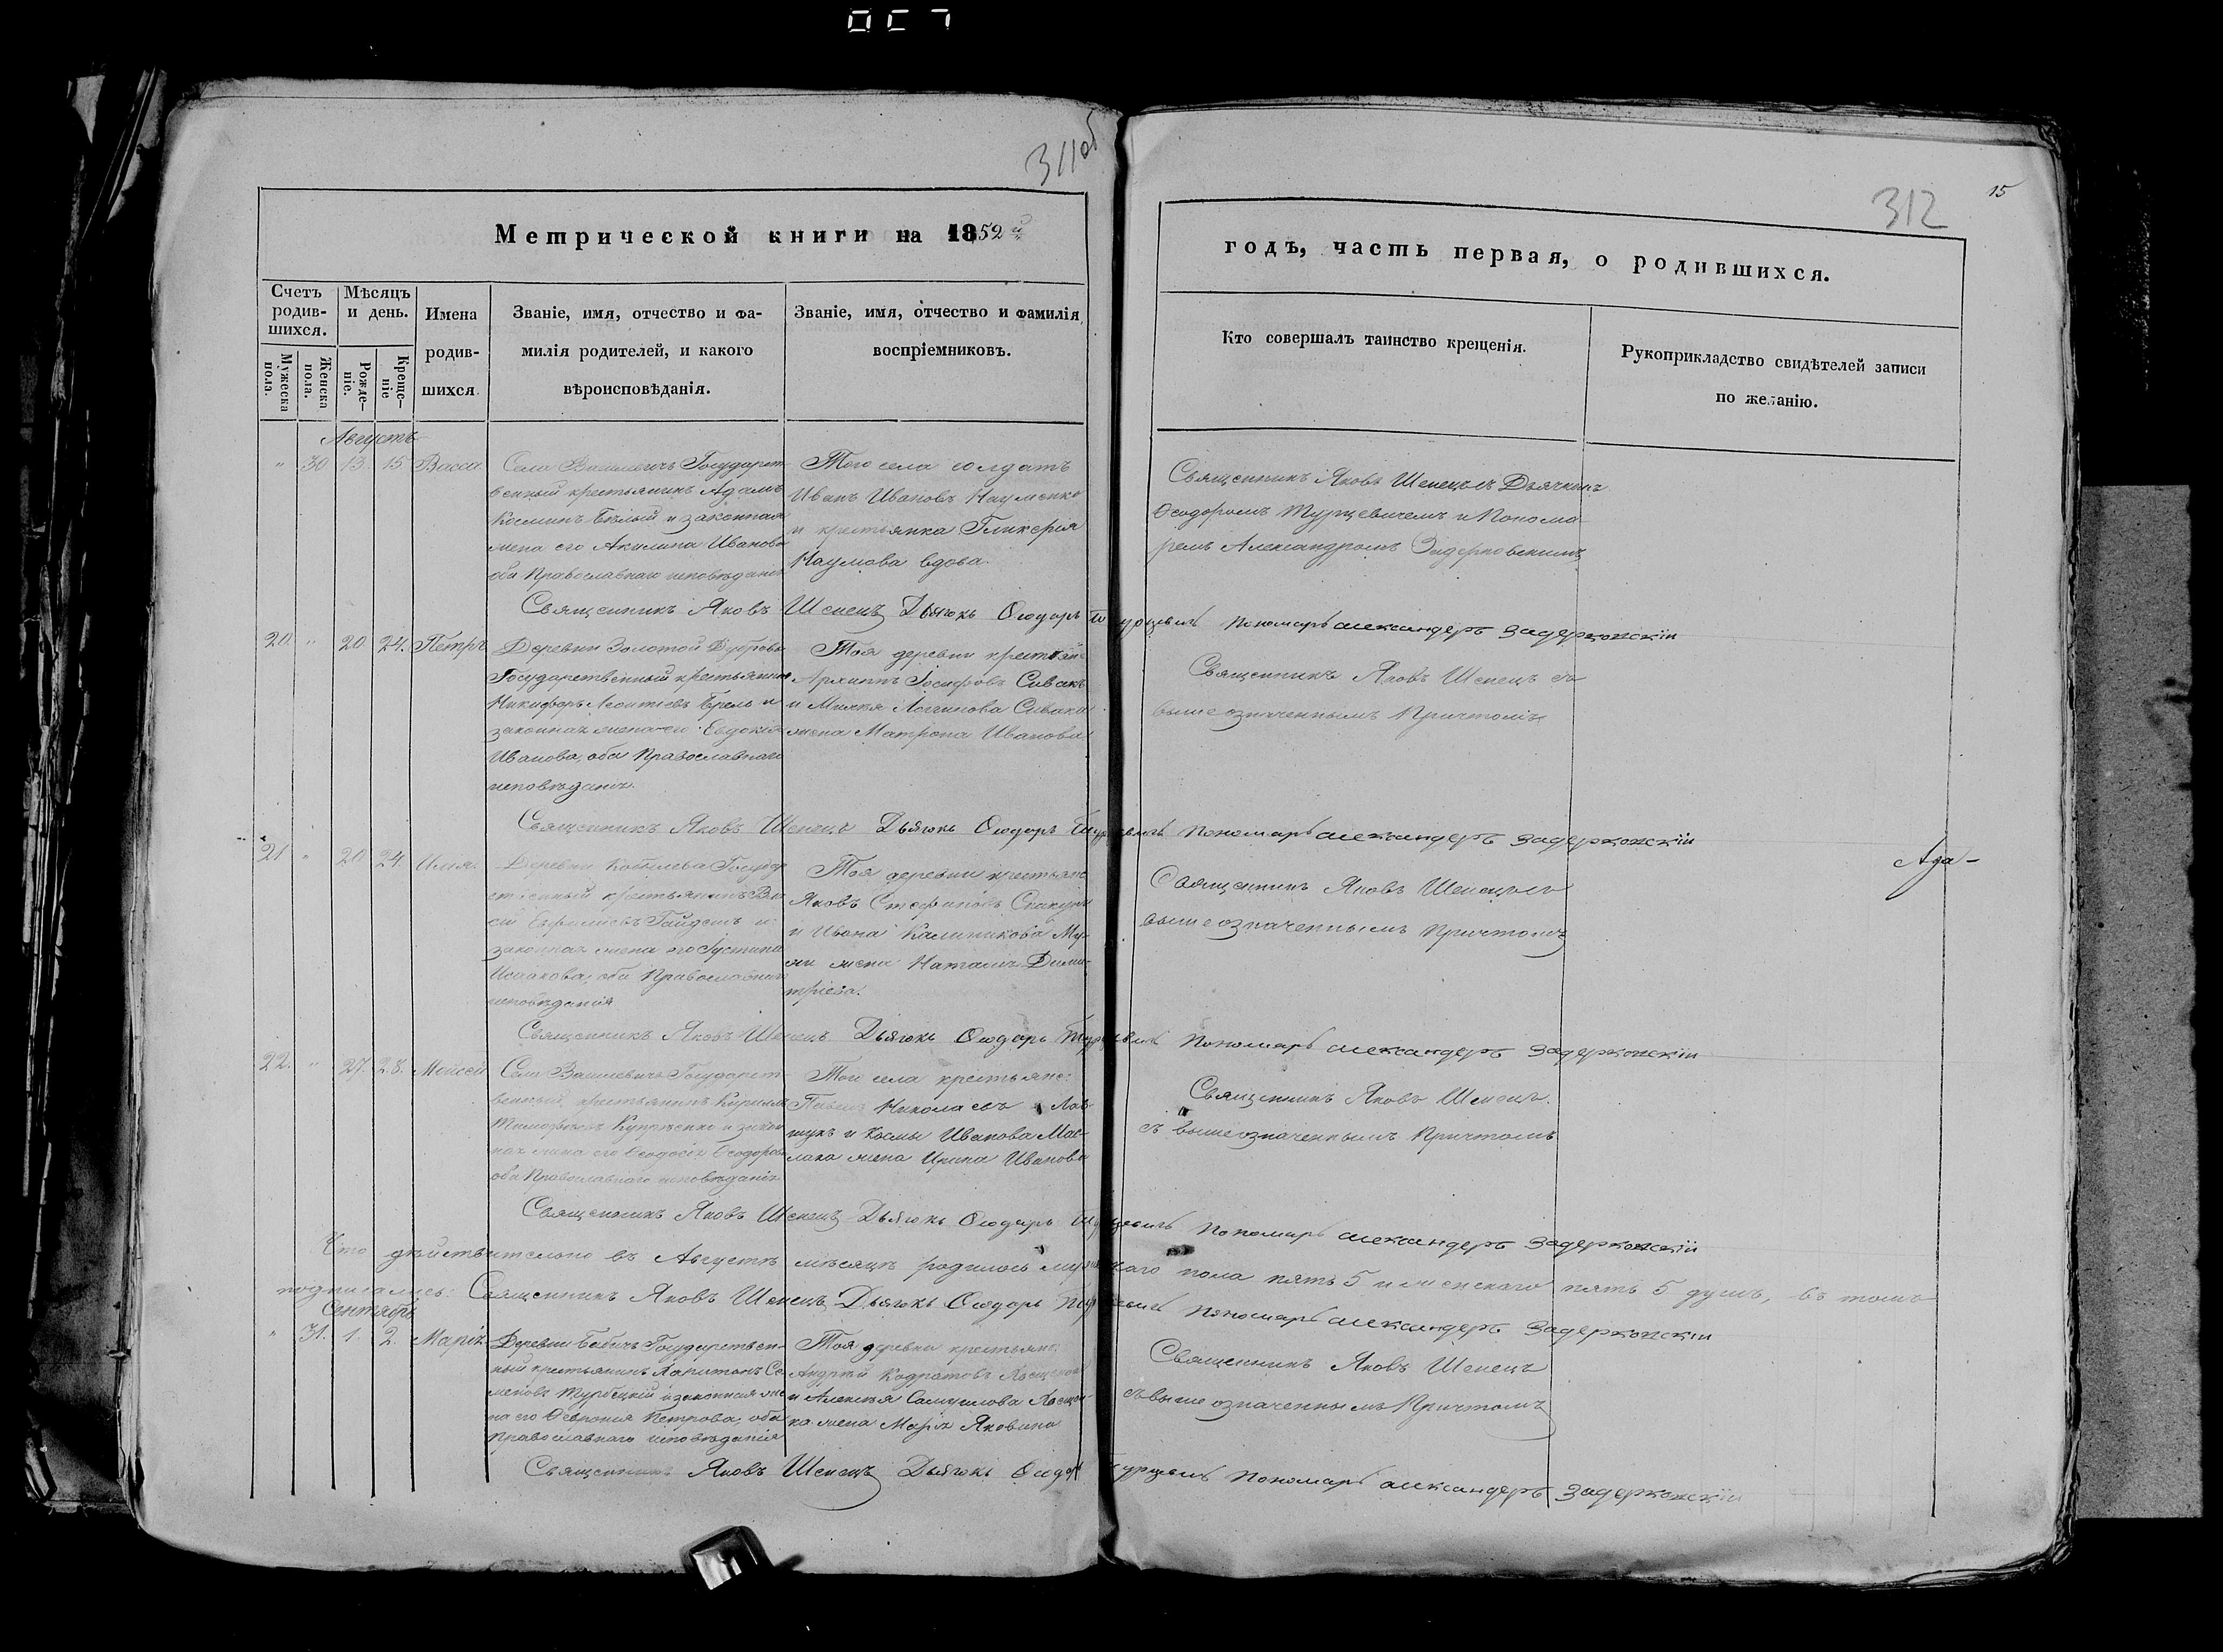 311об
Метрической книги на 1852й
Счетъ родив-шихся.
Мужеска пола.
Женска пола.
Мѣсяцъ и день.
Рожде-ніе.
Креще-ніе
Имена
родив-
шихся.
Званіе, имя, отчество и фа-
милія родителей, и какого
вѣроисповѣданія.
Званіе, имя, отчество и фамилія
воспріемниковъ.
312
15
годъ, часть первая, о родившихся.
Кто совершалъ таинство крещенія.
Рукоприкладство свидѣтелей записи
по желанію.
Августъ
" 30 13. 15 Васса
Села Василевичъ Государст-
венный крестьянинъ Адамъ
Косминъ Бѣлый и законная
жена его Акилина Иванова
оба Православнаго исповѣданія
Того села солдатъ
Иванъ Ивановъ Науменко
и крестьянка Гликерія
Наумова вдова.
Священникъ Яковъ Шепецъ съ Дьячкомъ
Ѳеодоромъ Турцевичемъ и Понома-
ремъ Александромъ
Священникъ Яковъ Шепецъ Дьячокъ Ѳеодоръ Турцевичъ Пономарь александеръ Задерковскій
20. " 20 24. Петръ
Деревни Золотой Дубровы
Государственный крестьянинъ
Никифоръ Леонтіевъ Брель и
законная жена его Евдокія
Иванова, оба Православнаго
исповѣданія.
Тоя деревни крестьян:
Архипъ Іосифовъ Сивакъ
и Сивака
жена Матрона Иванова
Священникъ Яковъ Шепецъ съ
вышеозначеннымъ Причтомъ
Священникъ Яковъ Шепецъ Дьячокъ Ѳеодоръ Турцевичъ Пономарь александеръ Задерковскій
21 " 20 24. Илія.
Деревни Государ-
ственный крестьянинъ
Евфиміевъ Гайдешъ и
законная жена его Іустина
Исаакова, оба Православнаго
исповѣданія
Тоя деревни крестьяне
Яковъ Стефановъ
и Ивана Калиникова
жена Наталія Дими-
тріева.
Священникъ Яковъ Шепецъ съ
вышеозначеннымъ Причтомъ
Ада-
Священникъ Яковъ Шепецъ Дьячокъ Ѳеодоръ Турцевичъ Пономарь александеръ Задерковскій
22. " 27. 28. Моисей
Села Василевичъ Государст-
венный крестьянинъ Кирилъ
Тимофѣевъ Купрѣенко и закон-
ная жена его Ѳеодосія Ѳеодорова
оба Православнаго исповѣданія
Того села крестьяне:
Николаевъ
и Космы Иванова Мас-
лака жена Ирина Иванова
Священникъ Яковъ Шепецъ.
съ вышеозначеннымъ Причтомъ
Священникъ Яковъ Шепецъ Дьячокъ Ѳеодоръ Турцевичъ Пономарь александеръ Задерковскій
Что дѣйствительно въ Августѣ мѣсяцѣ родилось мужескаго пола пять 5 и женскаго пять 5 душъ, въ томъ
подписались: Священникъ Яковъ Шепецъ Дьячокъ Ѳеодоръ Турцевичъ Пономарь александеръ Задерковскій
Сентябрь
" 31. 1. 2. Марія
Деревни Бабичъ Государствен-
ный крестьянинъ Харитонъ Се-
меновъ Турбецкій и законная же-
на его Ѳевронія Петрова, оба
Православнаго исповѣданія
Тоя деревни крестьяне:
Андрей Кодратовъ
и Алексѣя Самуилова
жена Марія Яковина
Священникъ Яковъ Шепецъ
съ вышеозначеннымъ Причтомъ
Священникъ Яковъ Шепецъ Дьячокъ Ѳеодоръ Турцевичъ Пономарь александеръ Задерковскій